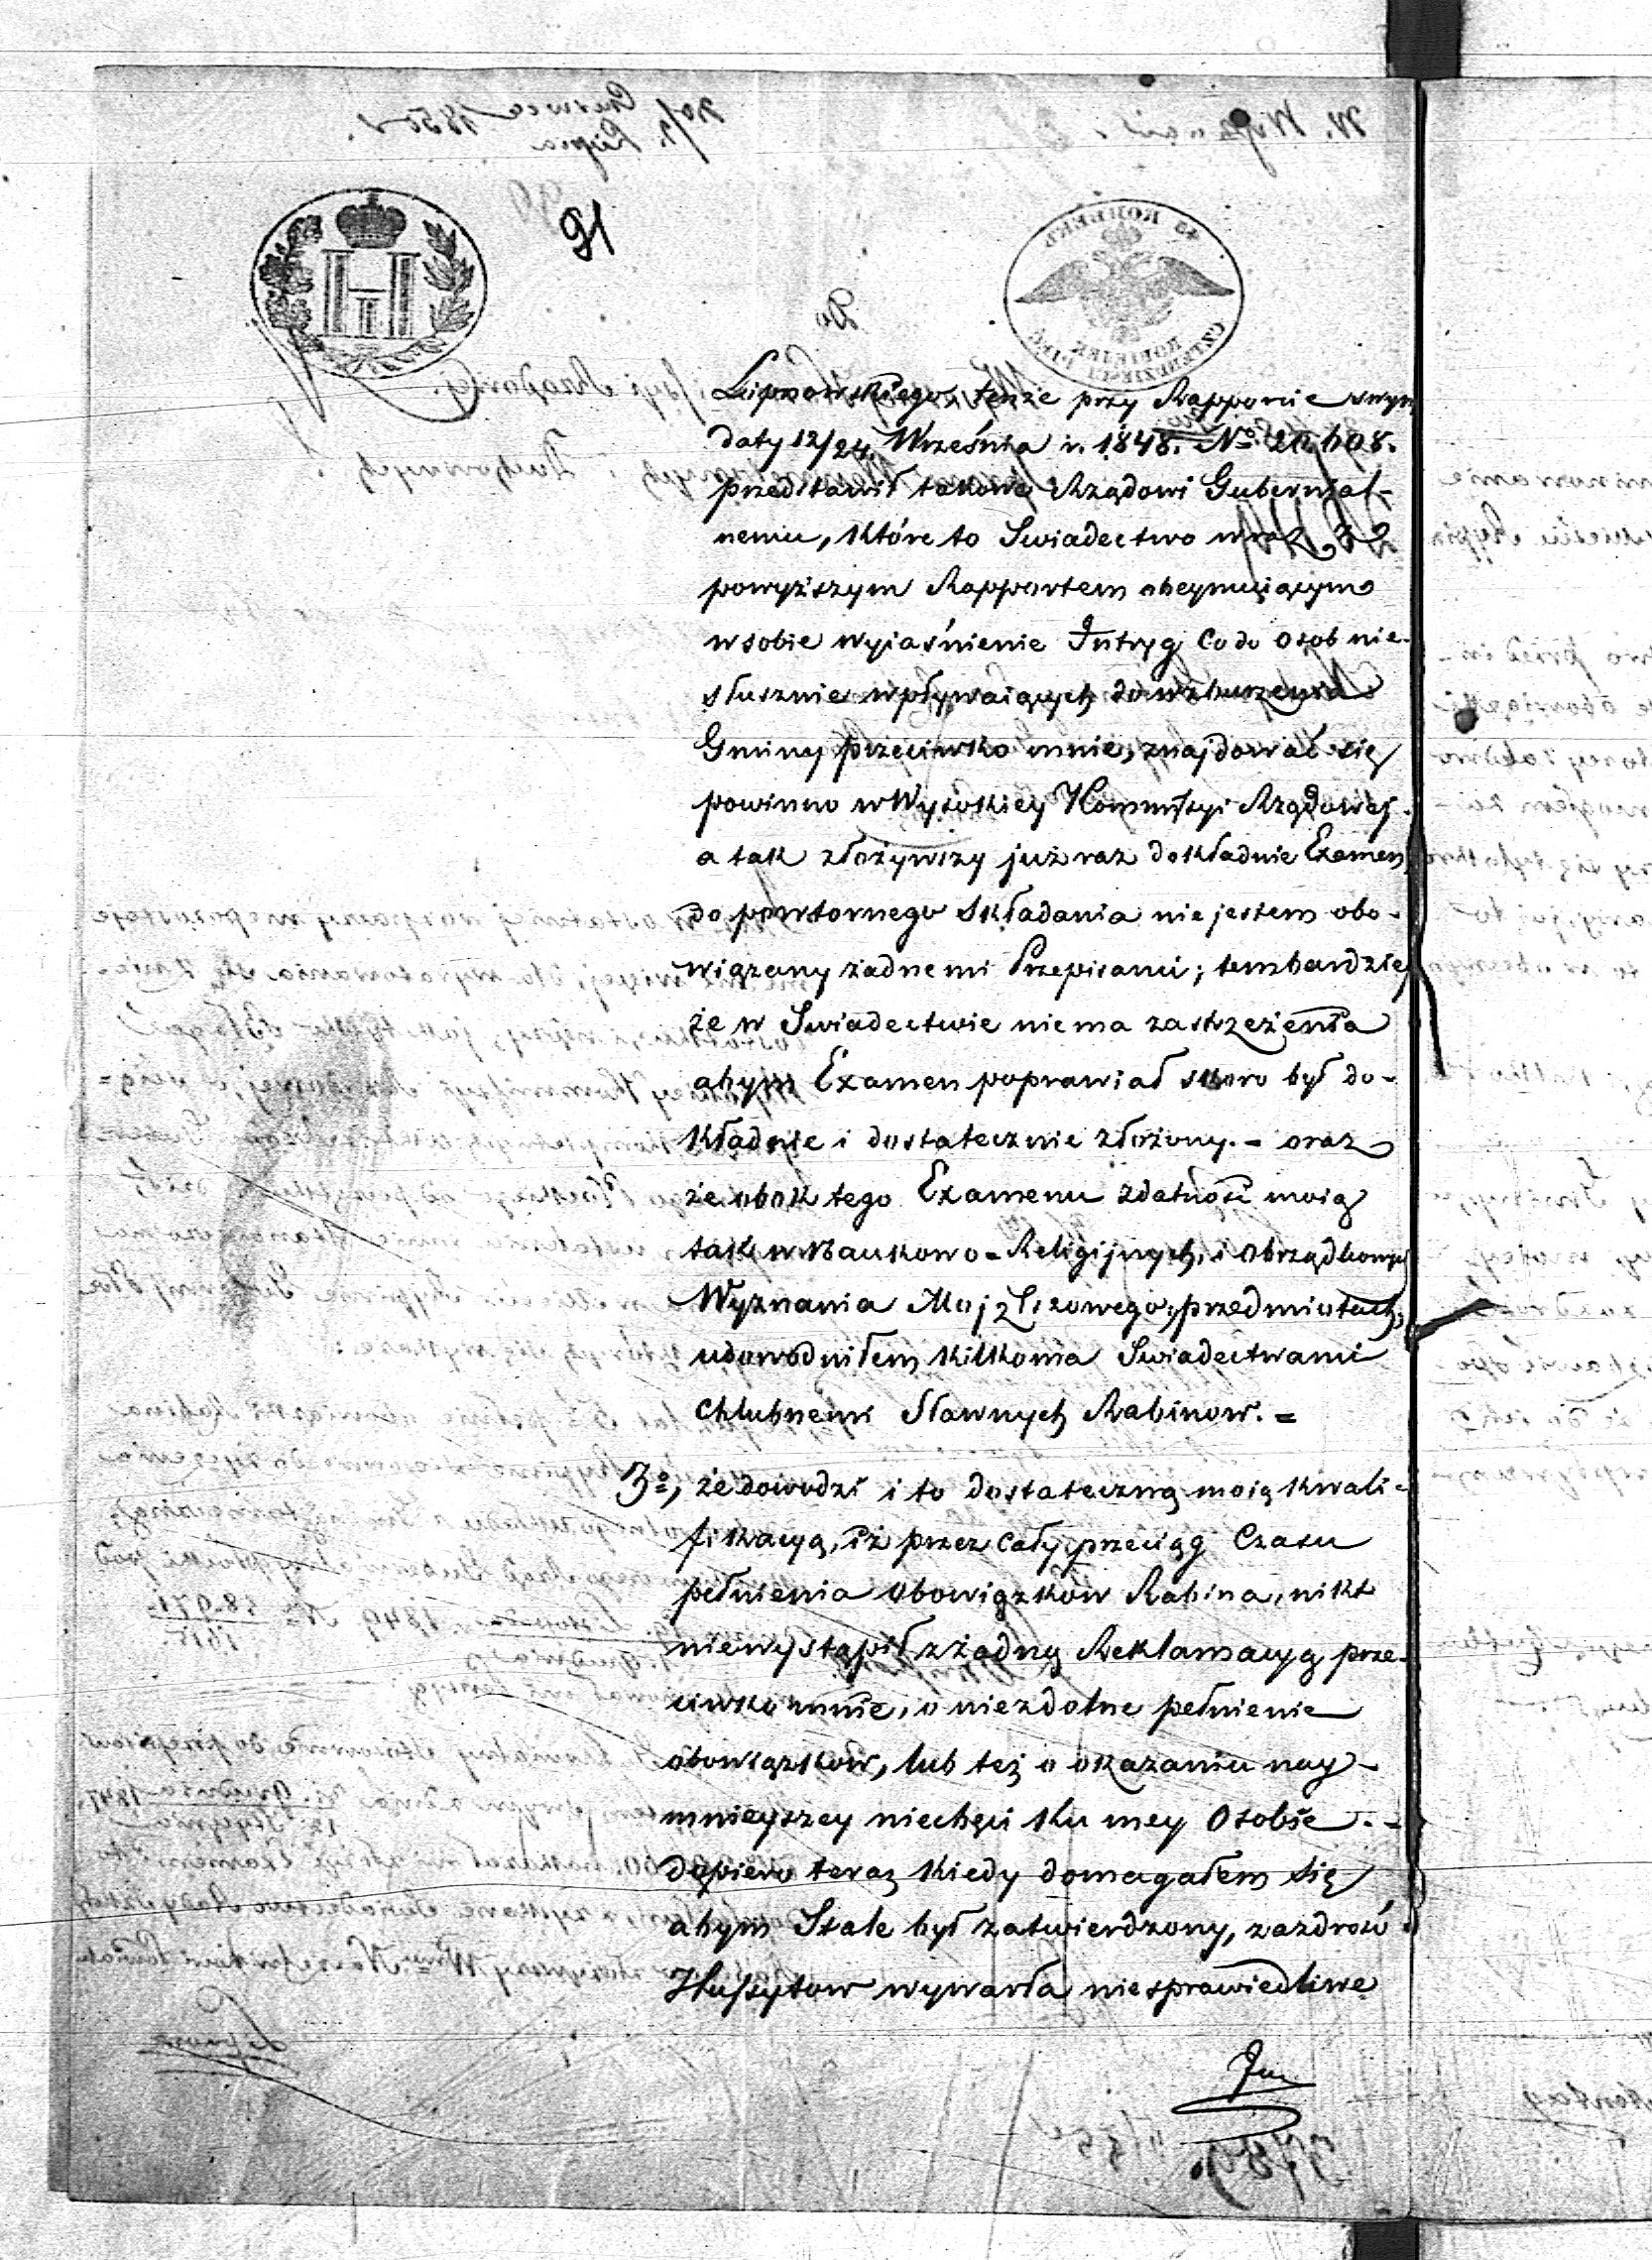 91
Lipnowskiego, tenże przy Rapporcie swym
daty 12/24 Września r. 1848. No 20,608.
przedstawił takowe Rządowi Gubernial-
nemu, które to Swiadectwo wraz z
powyższym Rapportem obeymuiącym
w sobie wyiaśnienie Intryg co do osob nie-
słusznie wpływaiących do wzburzenia
Gminy przeciwko mnie, znajdować się
powinno w Wysokiey Kommissyi Rządowej.
a tak złożywszy już raz dokładnie Examen,
do powtornego składania nie jestem obo-
wiązany żadnemi Przepisami; tembardziej
że w Swiadectwie niema zastrzeżenia
abym Examen poprawiał skoro był do-
kładnie i dostatecznie złożony. - oraz
że obok tego Examenu zdatność moią
tak w Naukowo-Religijnych, i obrządkowych
Wyznania Mojżeszowego, przedmiotach,
udowodniłem kilkoma Swiadectwami
chlubnemi Sławnych Rabinow. =
3o, że dowodzi i to dostateczną moią kwali-
fikacyą, iż przez cały przeciąg Czasu
pełnienia obowiązkow Rabina, nikt
niewystąpił z żadną Reklamacyą prze-
ciwko mnie, o niezdolne pełnienie
obowiązkow, lub też o okazaniu nay-
mnieyszey niechęci ku mey Osobie. -
dopiero teraz kiedy domagałem się
abym Stale był zatwierdzony, zazdrość
Hussytow wywarła niesprawiedliwe